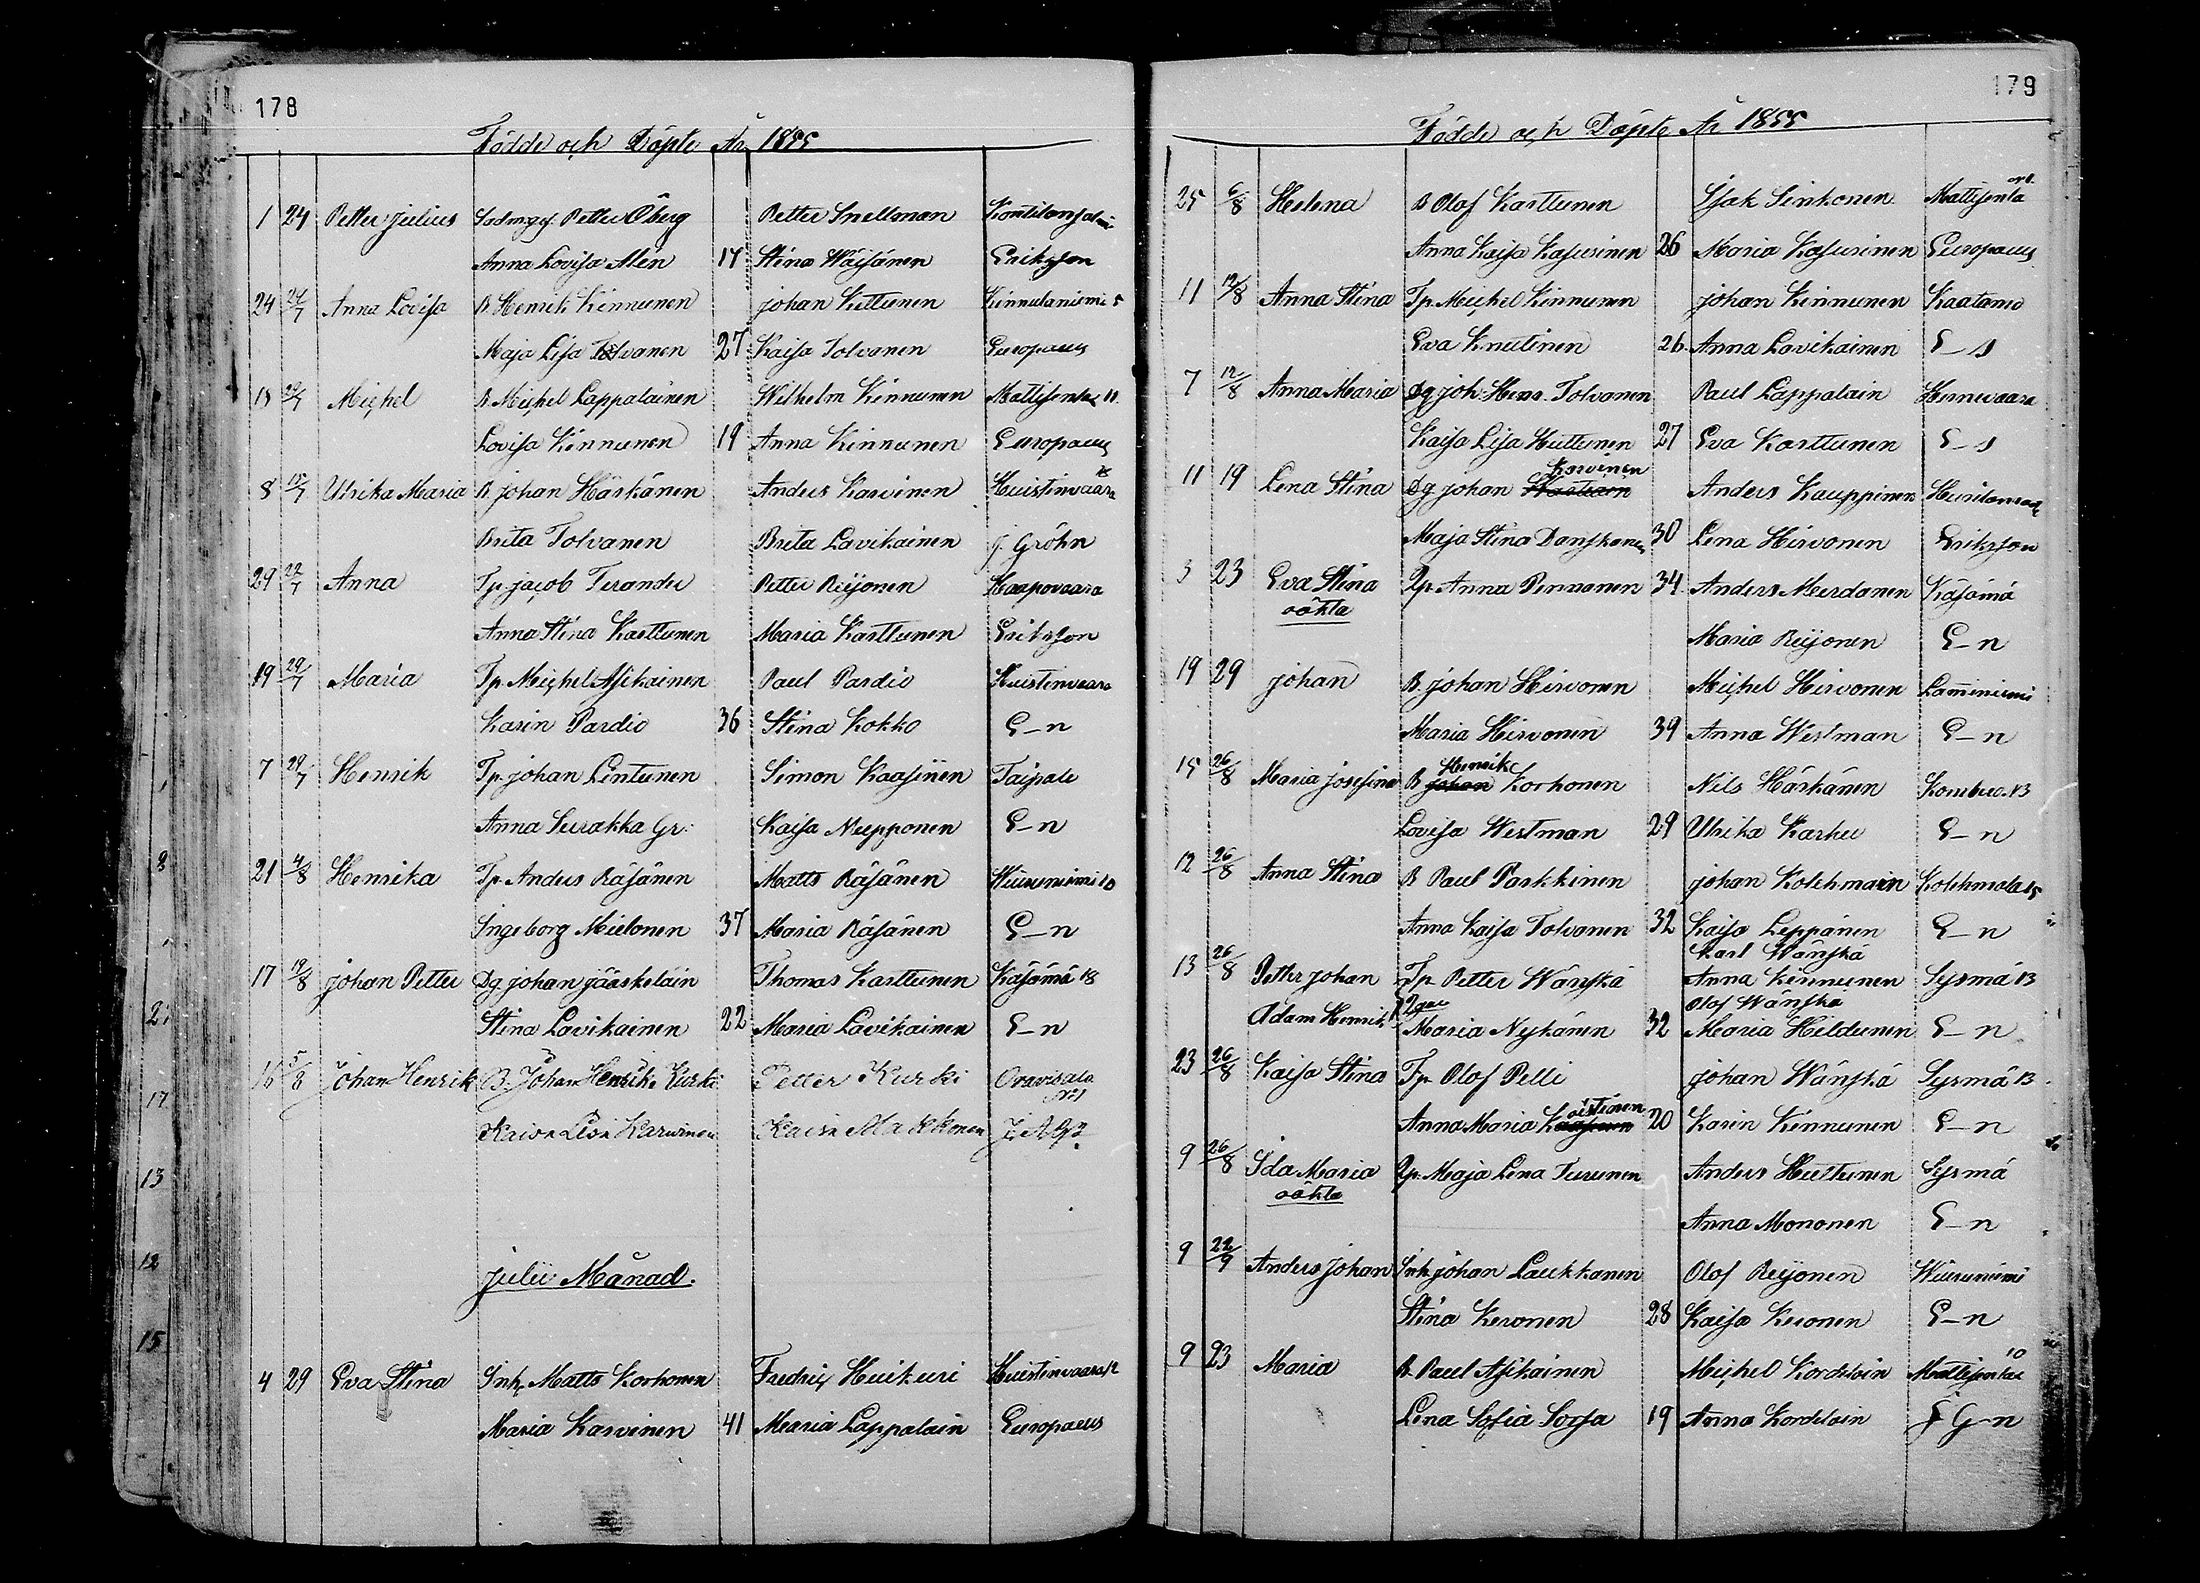 178
Födde och Döpte År 1855
1 24 Petter Julius Sadmges. Petter Öberg Petter Snellman Konttilansalmi
Anna Lovisa Alén 17 Stina Wäisänen Eriksson
24 24/7 Anna Lovisa B. Henrik Kinnunen Johan Kuttunen Kinnulaniemi 5
Maja Lisa Tolvanen 27 Kaisa Tolvanen Europaeus
18 29/7 Michel B. Michel Lappalainen Wilhelm Kinnunen Mattisenla 11
Lovisa Kinnunen 19 Anna Kinnunen Europaeus
8 15/7 Ulrika Maria B. Johan Härkänen Anders Karvinen Huistinvaara
Brita Tolvanen Brita Lavikainen J. Gröhn
29 22/7 Anna Tp. Jacob Turander Petter Reijonen Haapovaara
Anna Stina Karttunen Maria Karttunen Eriksson
19 29/7 Maria Tp. Michel Asikainen Paul Pardio Huistinvaara
Karin Pardio 36 Stina Kokko E–n
7 29/7 Henrik Tp. Johan Lintunen Simon Kaasinen Taipale
Anna Surakka Gr. Kaisa Nupponen E–n
21 4/8 Henrika Tp. Anders Räsänen Matts Räsänen Wiuruniemi 10
Ingeborg Mielonen 37 Maria Räsänen E–n
17 19/8 Johan Petter Dg. Johan Jääskeläin Thomas Karttunen Käsämä 18
Stina Lavikainen 22 Maria Lavikainen E–n
16 5/8 Johan Henrik B. Johan Henrik Kurki Petter Kurki Oravisalo
Kaisa Lisa Karvinen Kaisa Makkonen
Julii Månad.
4 29 Eva Stina Inh. Matts Korhonen Fredric Huikuri Huistinvaara 12
Maria Karvinen 41 Maria Lappalain Europaeus
179
Födde och Döpte År 1855
25 6/8 Helena B Olof Karttunen Isak Sinkonen Mattisenla
Anna Kaisa Kasurinen 26 Maria Kasurinen Europaeus
11 12/8 Anna Stina Tp. Michel Kinnunen Johan Kinnunen Kaatamo
Eva Knutinen 26. Anna Lavikainen E–s
7 12/8 Anna Maria Dg Joh. Henr. Tolvanen Paul Lappalain Hernevaara
Kaisa Lisa Huttunen 27 Eva Karttunen E–s
11 19 Lena Stina Dg Johan Karvinen Anders Kauppinen
Maja Stina Danskanen 30 Lena Hirvonen Eriksson
3 23 Eva Stina Qp. Anna Pennanen 34 Anders Murdonen Käsämä
oäkta Maria Reijonen E–n
19 29 Johan B. Johan Hirvonen Michel Hirvonen Lamminiemi
Maria Hirvonen 39 Anna Westman E–n
15 26/8 Maria Josefina B Johan Henrik Korhonen Nils Härkänen Kombuo. 13
Lovisa Westman 29 Ulrika Karhu E–n
12 26/8 Anna Stina B Paul Parkkinen Johan Kolehmain Kolehmala 15
Anna Kaisa Tolvanen 32 Kaisa Leppänen E–n
Karl Wänskä
13 26/8 Petter Johan Tp. Petter Wänskä Anna Kinnunen Sysmä 13
Olof Wänskä
Adam Henrik Maria Nykänen 32 Maria Hildunen E–n
23 26/8 Kaisa Stina Tp. Olof Pelli Johan Wänskä Sysmä 13
Anna Maria Koistinen 20 Karin Kinnunen E–n
9 26/8 Ida Maria Qp. Maja Lena Turunen Anders Huttunen Sysmä
oäkta
Anna Mononen E–n
9 22/9 Anders Johan Inh. Johan Laukkanen Olof Reijonen Wiuruniemi
Stina Keronen 28 Kaisa Keronen E–n
9 23 Maria B. Paul Asikainen Michel Kordelain Mattisenla 10
Lena Sofia Sorsa 19 Anna Kordelain G–n